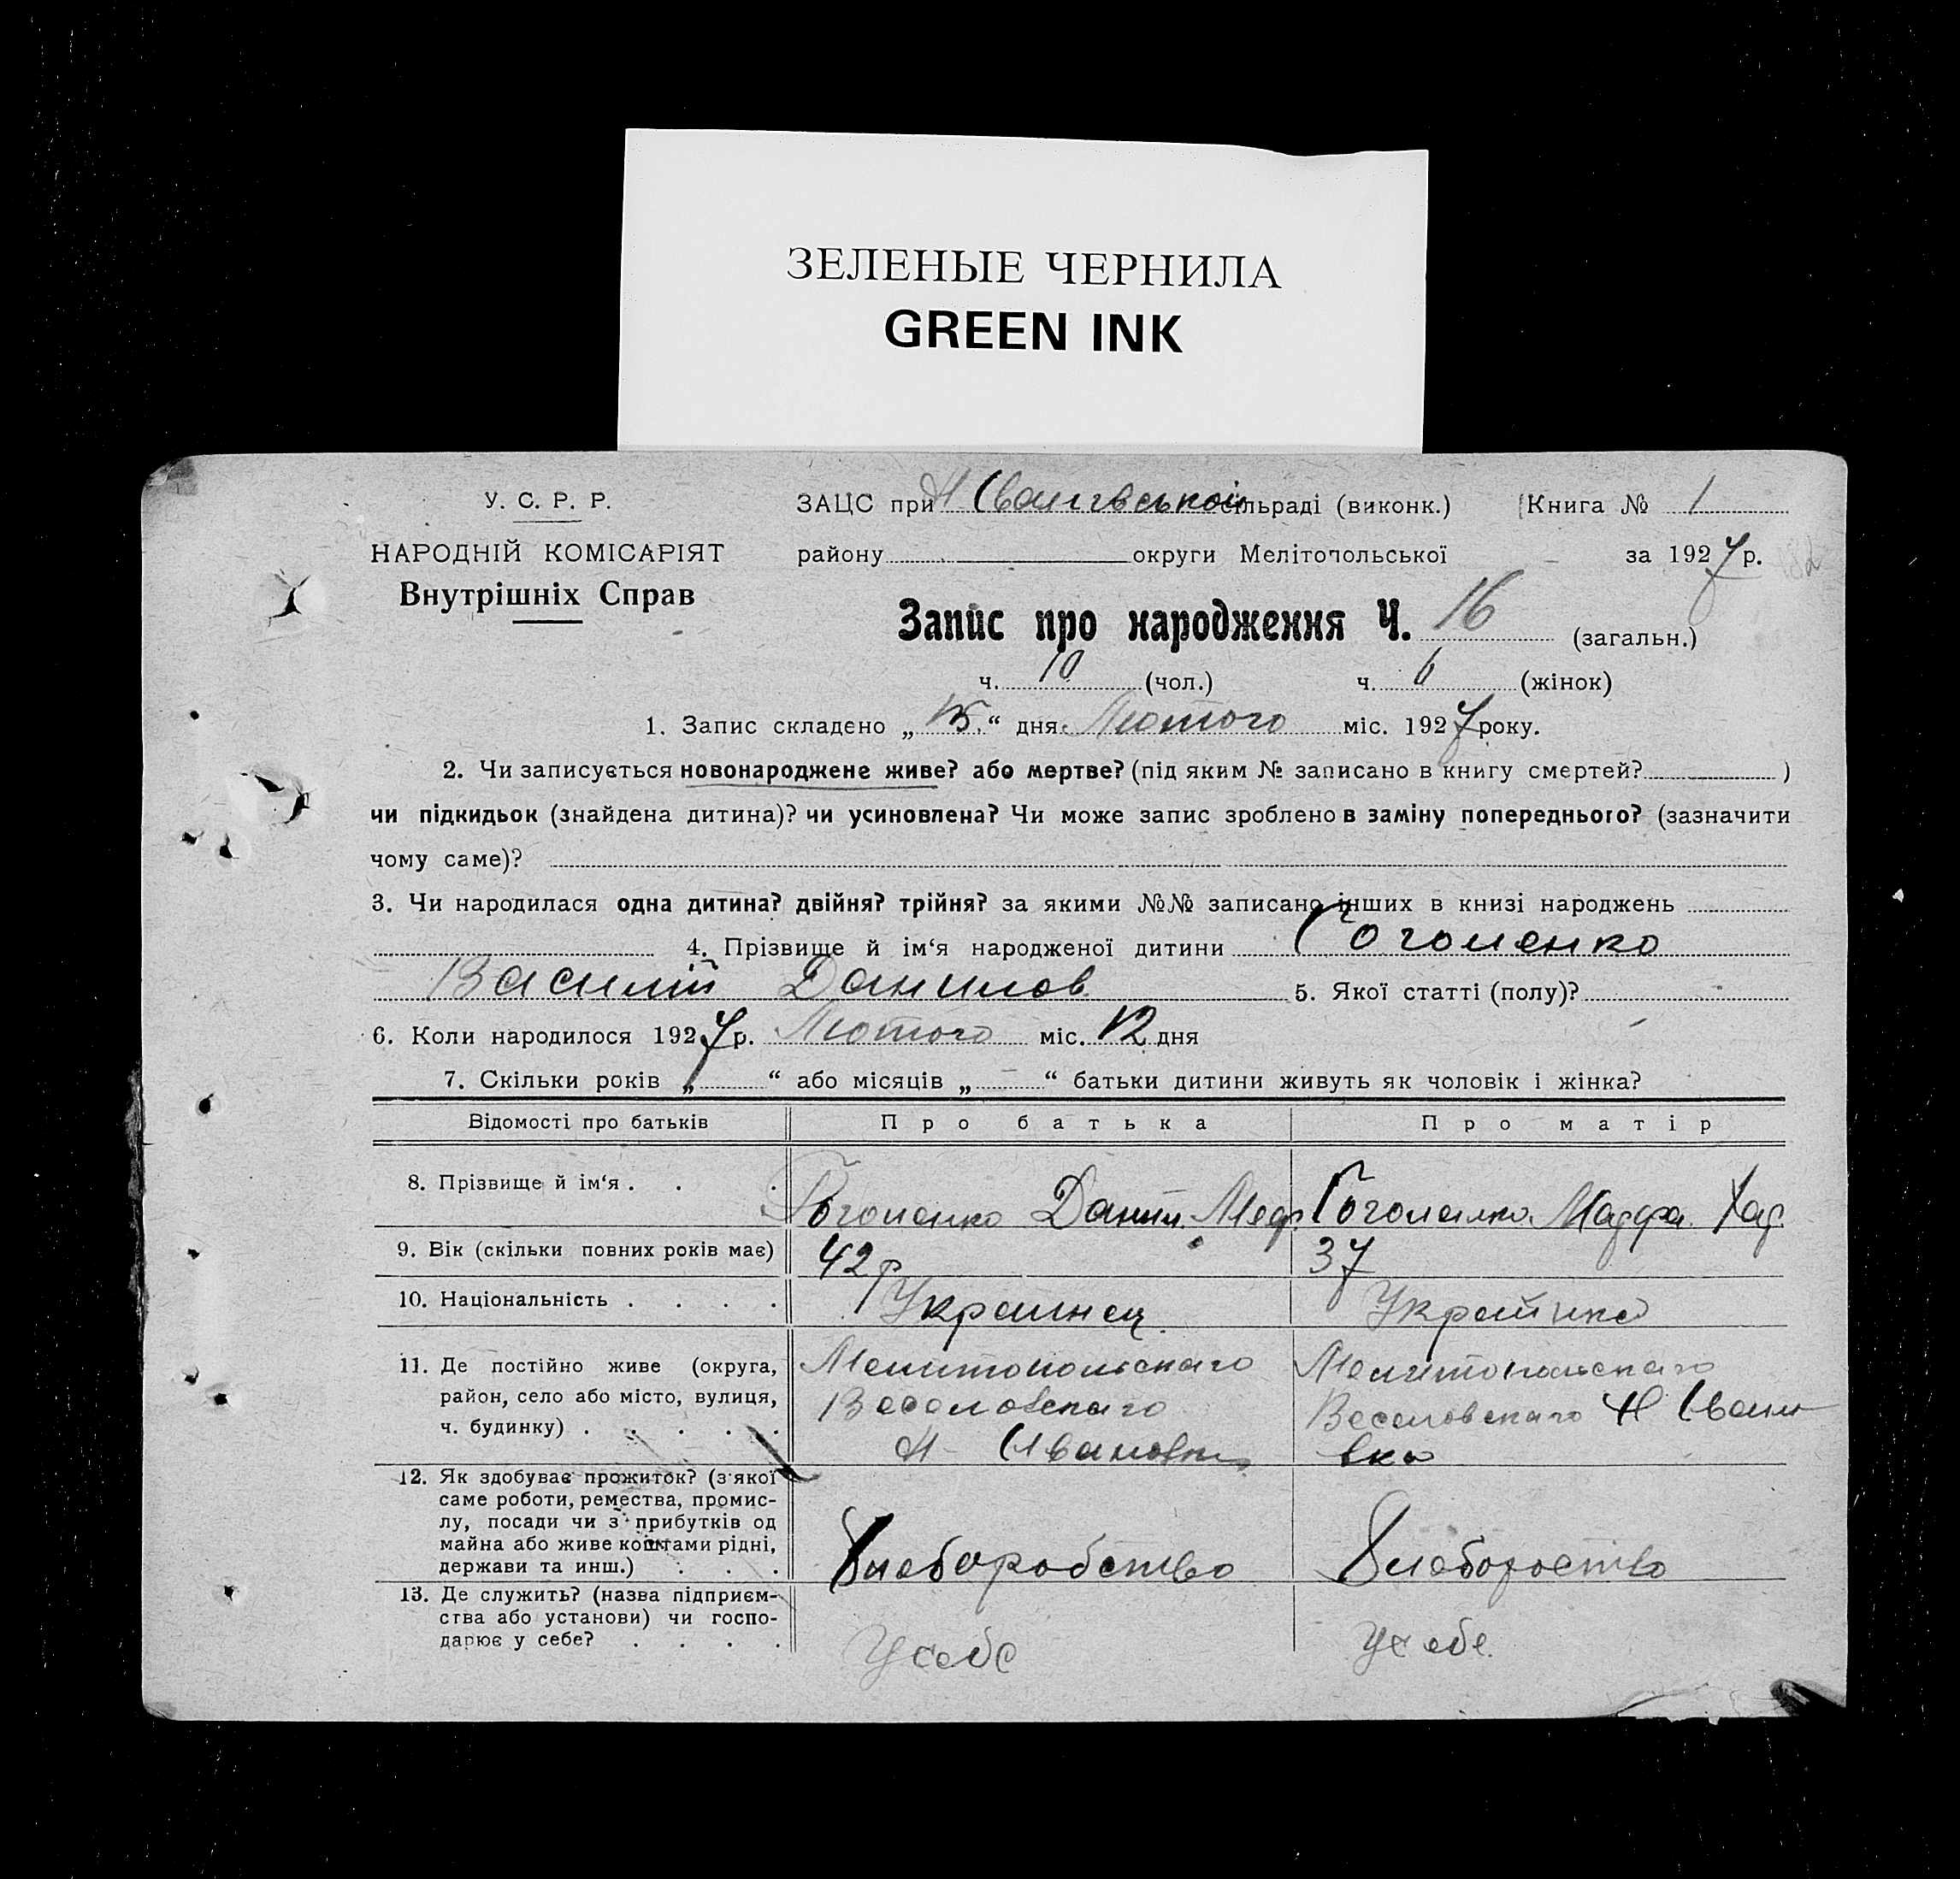 ЗЕЛЕНЫЕ ЧЕРНИЛА
GREEN INK
У. С. Р. Р.
НАРОДНІЙ КОМІСАРІЯТ
Внутрішніх Справ
ЗАЦС при Н Іванівській сільраді (виконк.) Книга № 1
району округи Мелітопольської за 1927 р.
Запис про народження Ч. 16 (загальн.)
ч. 10 (чол.) ч. 6 (жінок)
1. Запис складено „15“ дня Лютого міс. 1927 року.
2. Чи записується новонароджене живе? або мертве? (під яким № записано в книгу смертей? )
чи підкидьок (знайдена дитина)? чи усиновлена? Чи може запис зроблено в заміну попереднього? (зазначити
чому саме)?
3. Чи народилася одна дитина? двійня? трійня? за якими №№ записано інших в книзі народжень
4. Прізвище й ім‘я народженої дитини Гоголенко
Василій Данилов 5. Якої статті (полу)?
6. Коли народилося 1927 р. Лютого міс. 12 дня
7. Скільки років „ “ або місяців „ “ батьки дитини живуть як чоловік і жінка?
Відомості про батьків Про батька Про матір
8. Прізвище й ім‘я . . . Гоголенко Данил. Меф. Гоголенко
9. Вік (скільки повних років має) 42 р 37
10. Національність . . . . Украинец Украинка
11. Де постійно живе (округа, Мелитопольскаго Мелитопольскаго
район, село або місто, вулиця, Веселовскаго Веселовскаго Н Івани
ч. будинку) . . . . . Н- Ивановка вка
12. Як здобуває прожиток? (з якої
саме роботи, ремества, промис-
лу, посади чи з прибутків од
майна або живе коштами рідні,
держави та инш.) . . . Хлеборобство Хлеборобство
13. Де служить? (назва підприєм-
ства або установи) чи госпо-
дарює у себе? . . . . У себе У себе